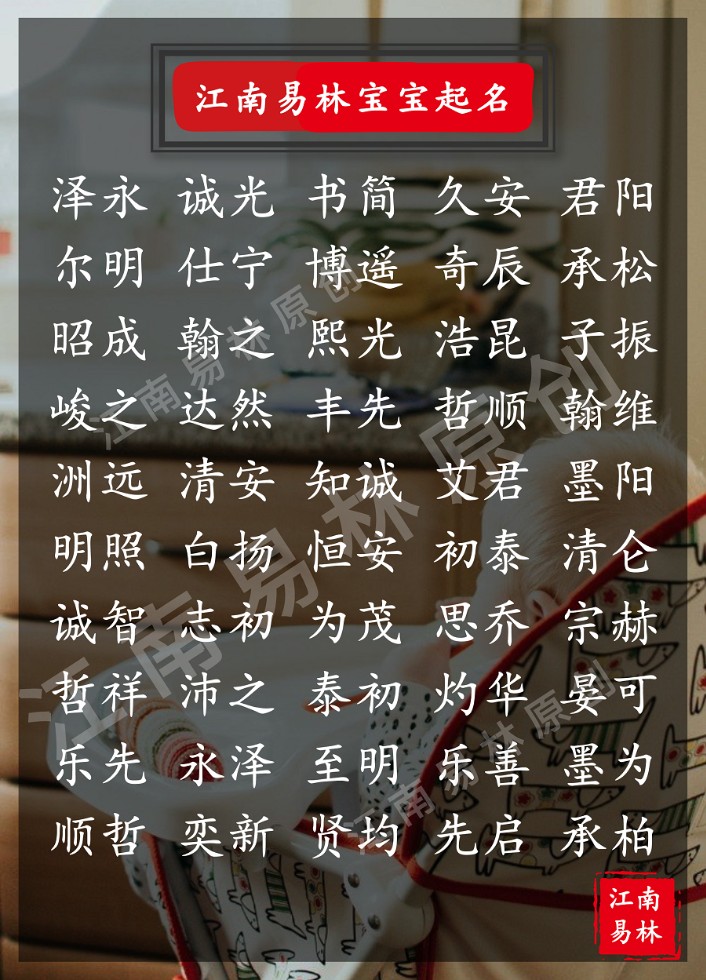 江南易林宝宝起名
泽永 诚光 书简 久安 君阳
尔明 仕宁 博遥 奇辰 承松
昭成 翰之 熙光 浩昆 子振
峻之 达然 丰先 哲顺 翰维
洲远 清安 知诚 艾君 墨阳
明照 白扬 恒安 初泰 清仑
诚智 志初 为茂 思乔 宗赫
哲祥 沛之 泰初 灼华 晏可
乐先 永泽 至明 乐善 墨为
顺哲 奕新 贤均 先启 承柏
江南易林原创
江南易林原创
江南易林原创
江南
易林